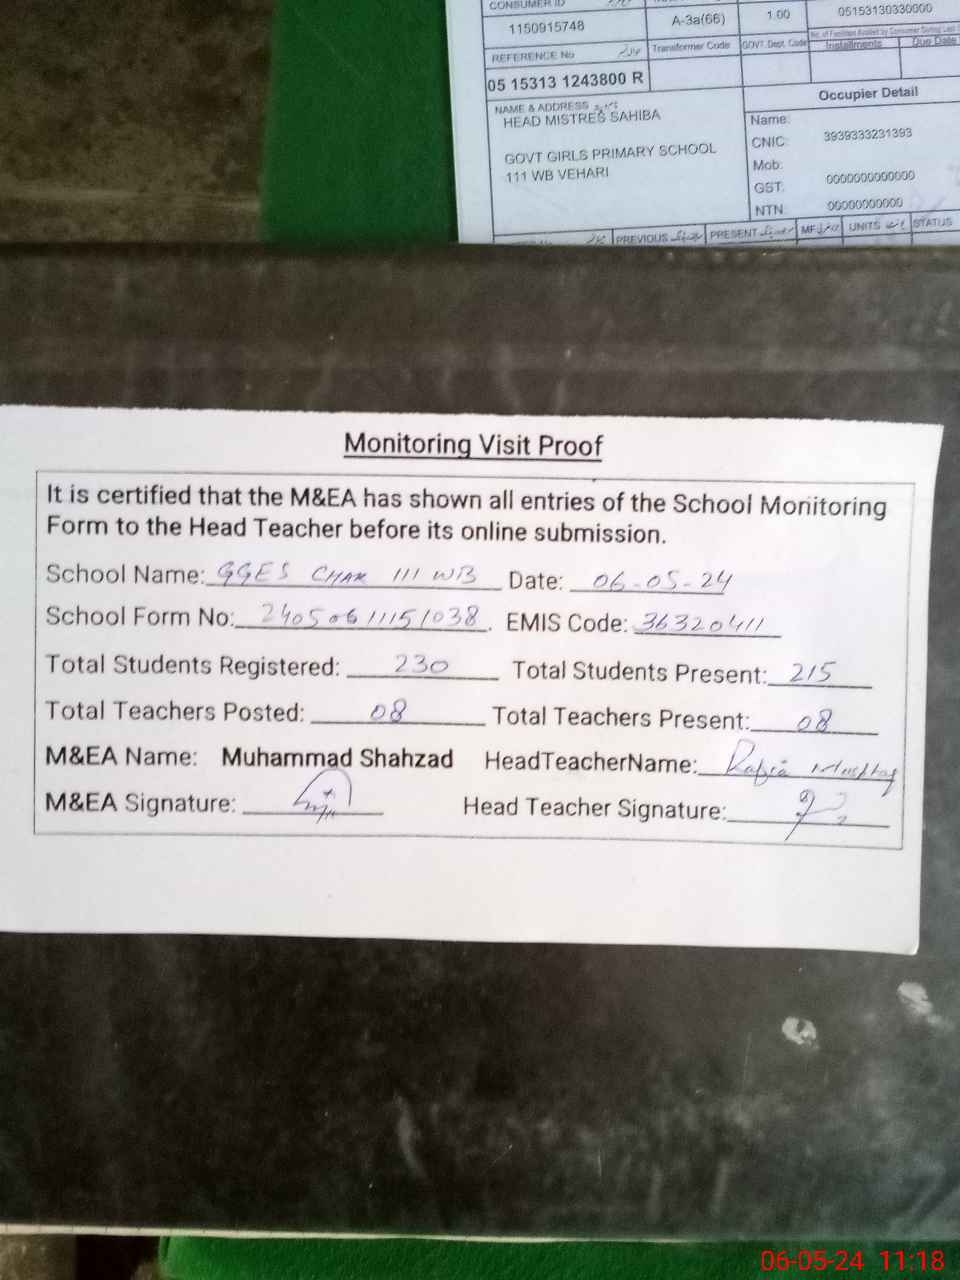 CONSUMER ID
1150915748 A-3a(66) 1.00 05153130330000
REFERENCE No Transformer Code GOVT. Dept. Code Installments Due Date
05 15313 1243800 R
NAME & ADDRESS Occupier Detail
HEAD MISTRES SAHIBA Name:
CNIC: 3939333231393
GOVT GIRLS PRIMARY SCHOOL Mob:
111 WB VEHARI GST: 0000000000000
NTN: 00000000000
PREVIOUS PRESENT MF UNITS STATUS
Monitoring Visit Proof
It is certified that the M&EA has shown all entries of the School Monitoring
Form to the Head Teacher before its online submission.
School Name: GGES CHAK 111 WB Date: 06-05-24
School Form No: 24050611151038. EMIS Code: 36320411
Total Students Registered: 230 Total Students Present: 215
Total Teachers Posted: 08 Total Teachers Present: 08
M&EA Name: Muhammad Shahzad HeadTeacherName: Rabia Mushtaq
M&EA Signature: Head Teacher Signature:
06-05-24 11:18